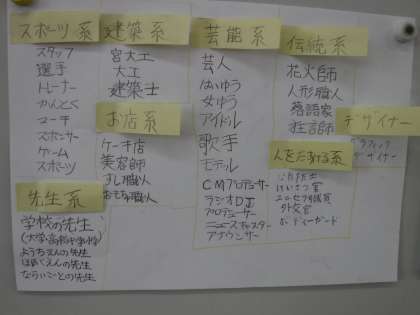 スポーツ系
スタッフ
選手
トレーナー
かんとく
コーチ
スポンサー
ゲーム
スポーツ
先生系
学校の先生
(大学・高校・中学校)
ようちえんの先生
ほいくえんの先生
ならいごとの先生
建築系
宮大工
大工
建築士
お店系
ケーキ店
美容師
すし職人
おもちゃ職人
芸能系
芸人
はいゆう
女ゆう
アイドル
歌手
モデル
CMプロデューサー
ラジオDJ
プロデューサー
ニュースキャスター
アナウンサー
伝統系
花火師
人形職人
落語家
人をたすける系
けいさつ官
外交官
ボディーガード
デザイナー
グラフィック
デザイナー